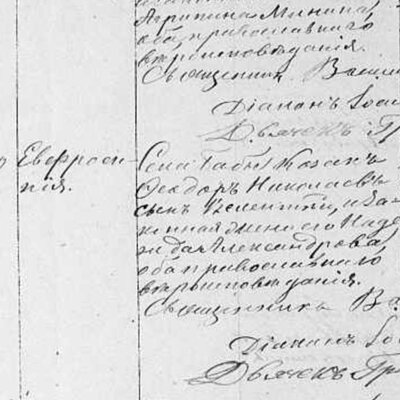 Агрипина Минина,
оба, православнаго
вѣроисповѣданія.
Священникъ Васил
Діаконъ Іоа
Дьячекъ Гр
Евфроси-
нія.
Села Казак
Ѳеодоръ Николаевъ
сынъ и за-
конная жена его Наде-
жда Александрова,
оба православнаго
вѣроисповѣданія.
Священникъ Ва
Діаконъ Іоа
Дьячекъ Гри